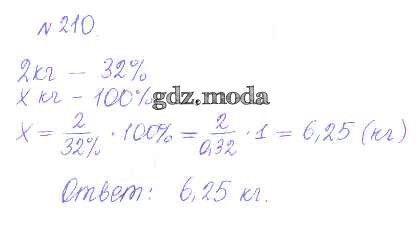 № 210.
2кг — 32%
x кг - 100%
gdz.moda
x = 2/32% · 100% = 2/0,32 · 1 = 6,25 (кг)
Ответ: 6,25 кг.